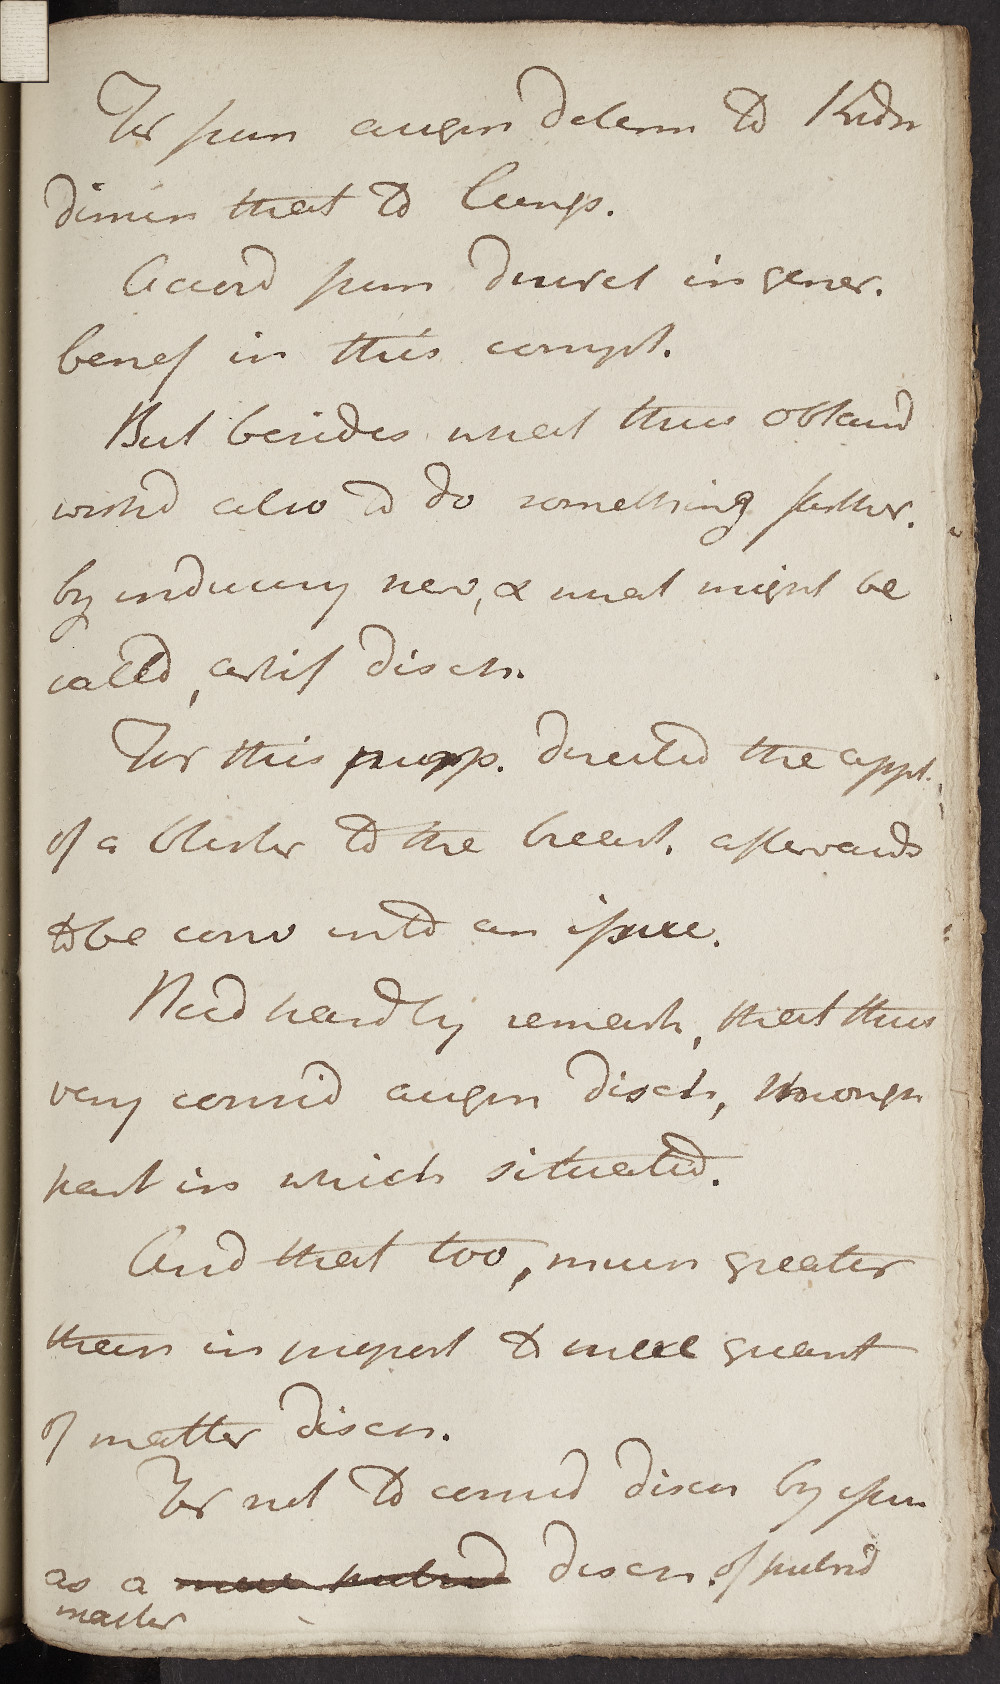 For hum augm determ to Kidn
dimin that to Lungs.
Accord hum diuret in gener.
benef in this compt.
But besides what thus obtaind
wishd also to do something farther.
by inducing new, & what might be
calld, artif disch.
For this purp. directed the appl.
of a blister to the breast. afterwards
to be conv into an issue.
Need hardly remark, that thus
very consid augm disch, through
part in which situated.
And that too, much greater
than in proport to mere quant
of matter disch.
For not to consid disch by issue
as a mere putrid disch of putrid
matter